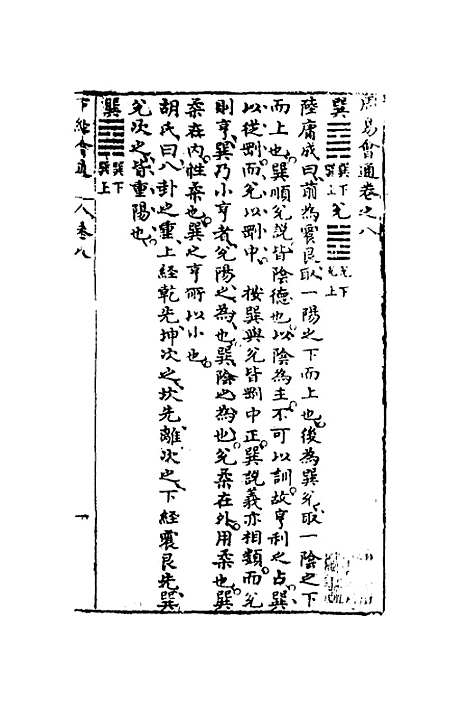 周易會通卷之八
巽 巽下巽上 兌 兌下兌上
陸庸成曰前為震艮取一陽之下而上也後為巽兌取一陰之下
而上也巽順兌說皆陰德也以陰為主不可以訓故亨利之占巽
以從剛而兌以剛中 按巽與兌皆剛中正巽說義亦相類而兌
則亨巽乃小亨者兌陽之為也巽陰之為也兌柔在外用柔也巽
柔在內性柔也巽之亨所以小也
胡氏曰八卦之重上經乾先坤次之坎先離次之下經震艮先巽
兌次之皆重陽也
巽 巽下巽上
卷八